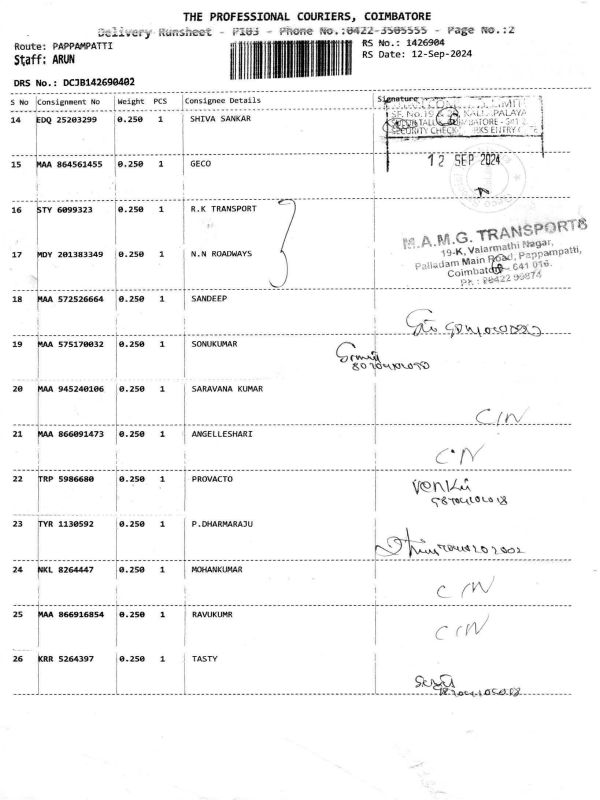 THE PROFESSIONAL COURIERS, COIMBATORE
Delivery Runsheet - P103 - Phone No.:0422-3505555 - Page No.:2
Route: PAPPAMPATTI
RS No.: 1426904
Staff: ARUN
RS Date: 12-Sep-2024
DRS No.: DCJB142690402
S No Consignment No Weight PCS Consignee Details Signature
14 EDQ 25203299 0.250 1 SHIVA SANKAR
12 SEP 2024
15 MAA 864561455 0.250 1 GECO
16 STY 6099323 0.250 1 R.K TRANSPORT
M.A.M.G. TRANSPORTS
19-K, Valarmathi Nagar,
17 MDY 201383349 0.250 1 N.N ROADWAYS
Palladam Main Road, Pappampatti,
Coimbatore - 641 016.
18 MAA 572526664 0.250 1 SANDEEP
19 MAA 575170032 0.250 1 SONUKUMAR
20 MAA 945240106 0.250 1 SARAVANA KUMAR
C/N
21 MAA 866091473 0.250 1 ANGELLESHARI
C/N
22 TRP 5986680 0.250 1 PROVACTO
23 TYR 1130592 0.250 1 P.DHARMARAJU
24 NKL 8264447 0.250 1 MOHANKUMAR
C/N
25 MAA 866916854 0.250 1 RAVUKUMR
C/N
26 KRR 5264397 0.250 1 TASTY